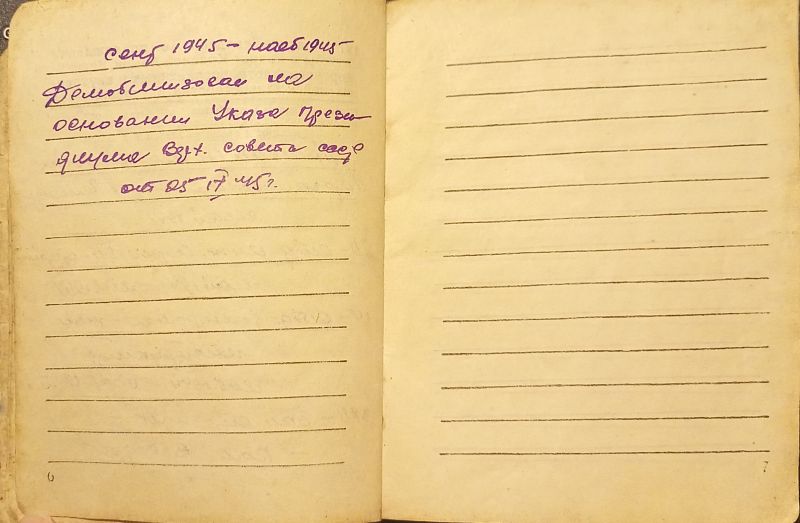 сент 1945 – нояб 1945
Демобилизован на
основании Указа Прези
диума Верх. совета ссср
от 25 IX 45 г.
6
7